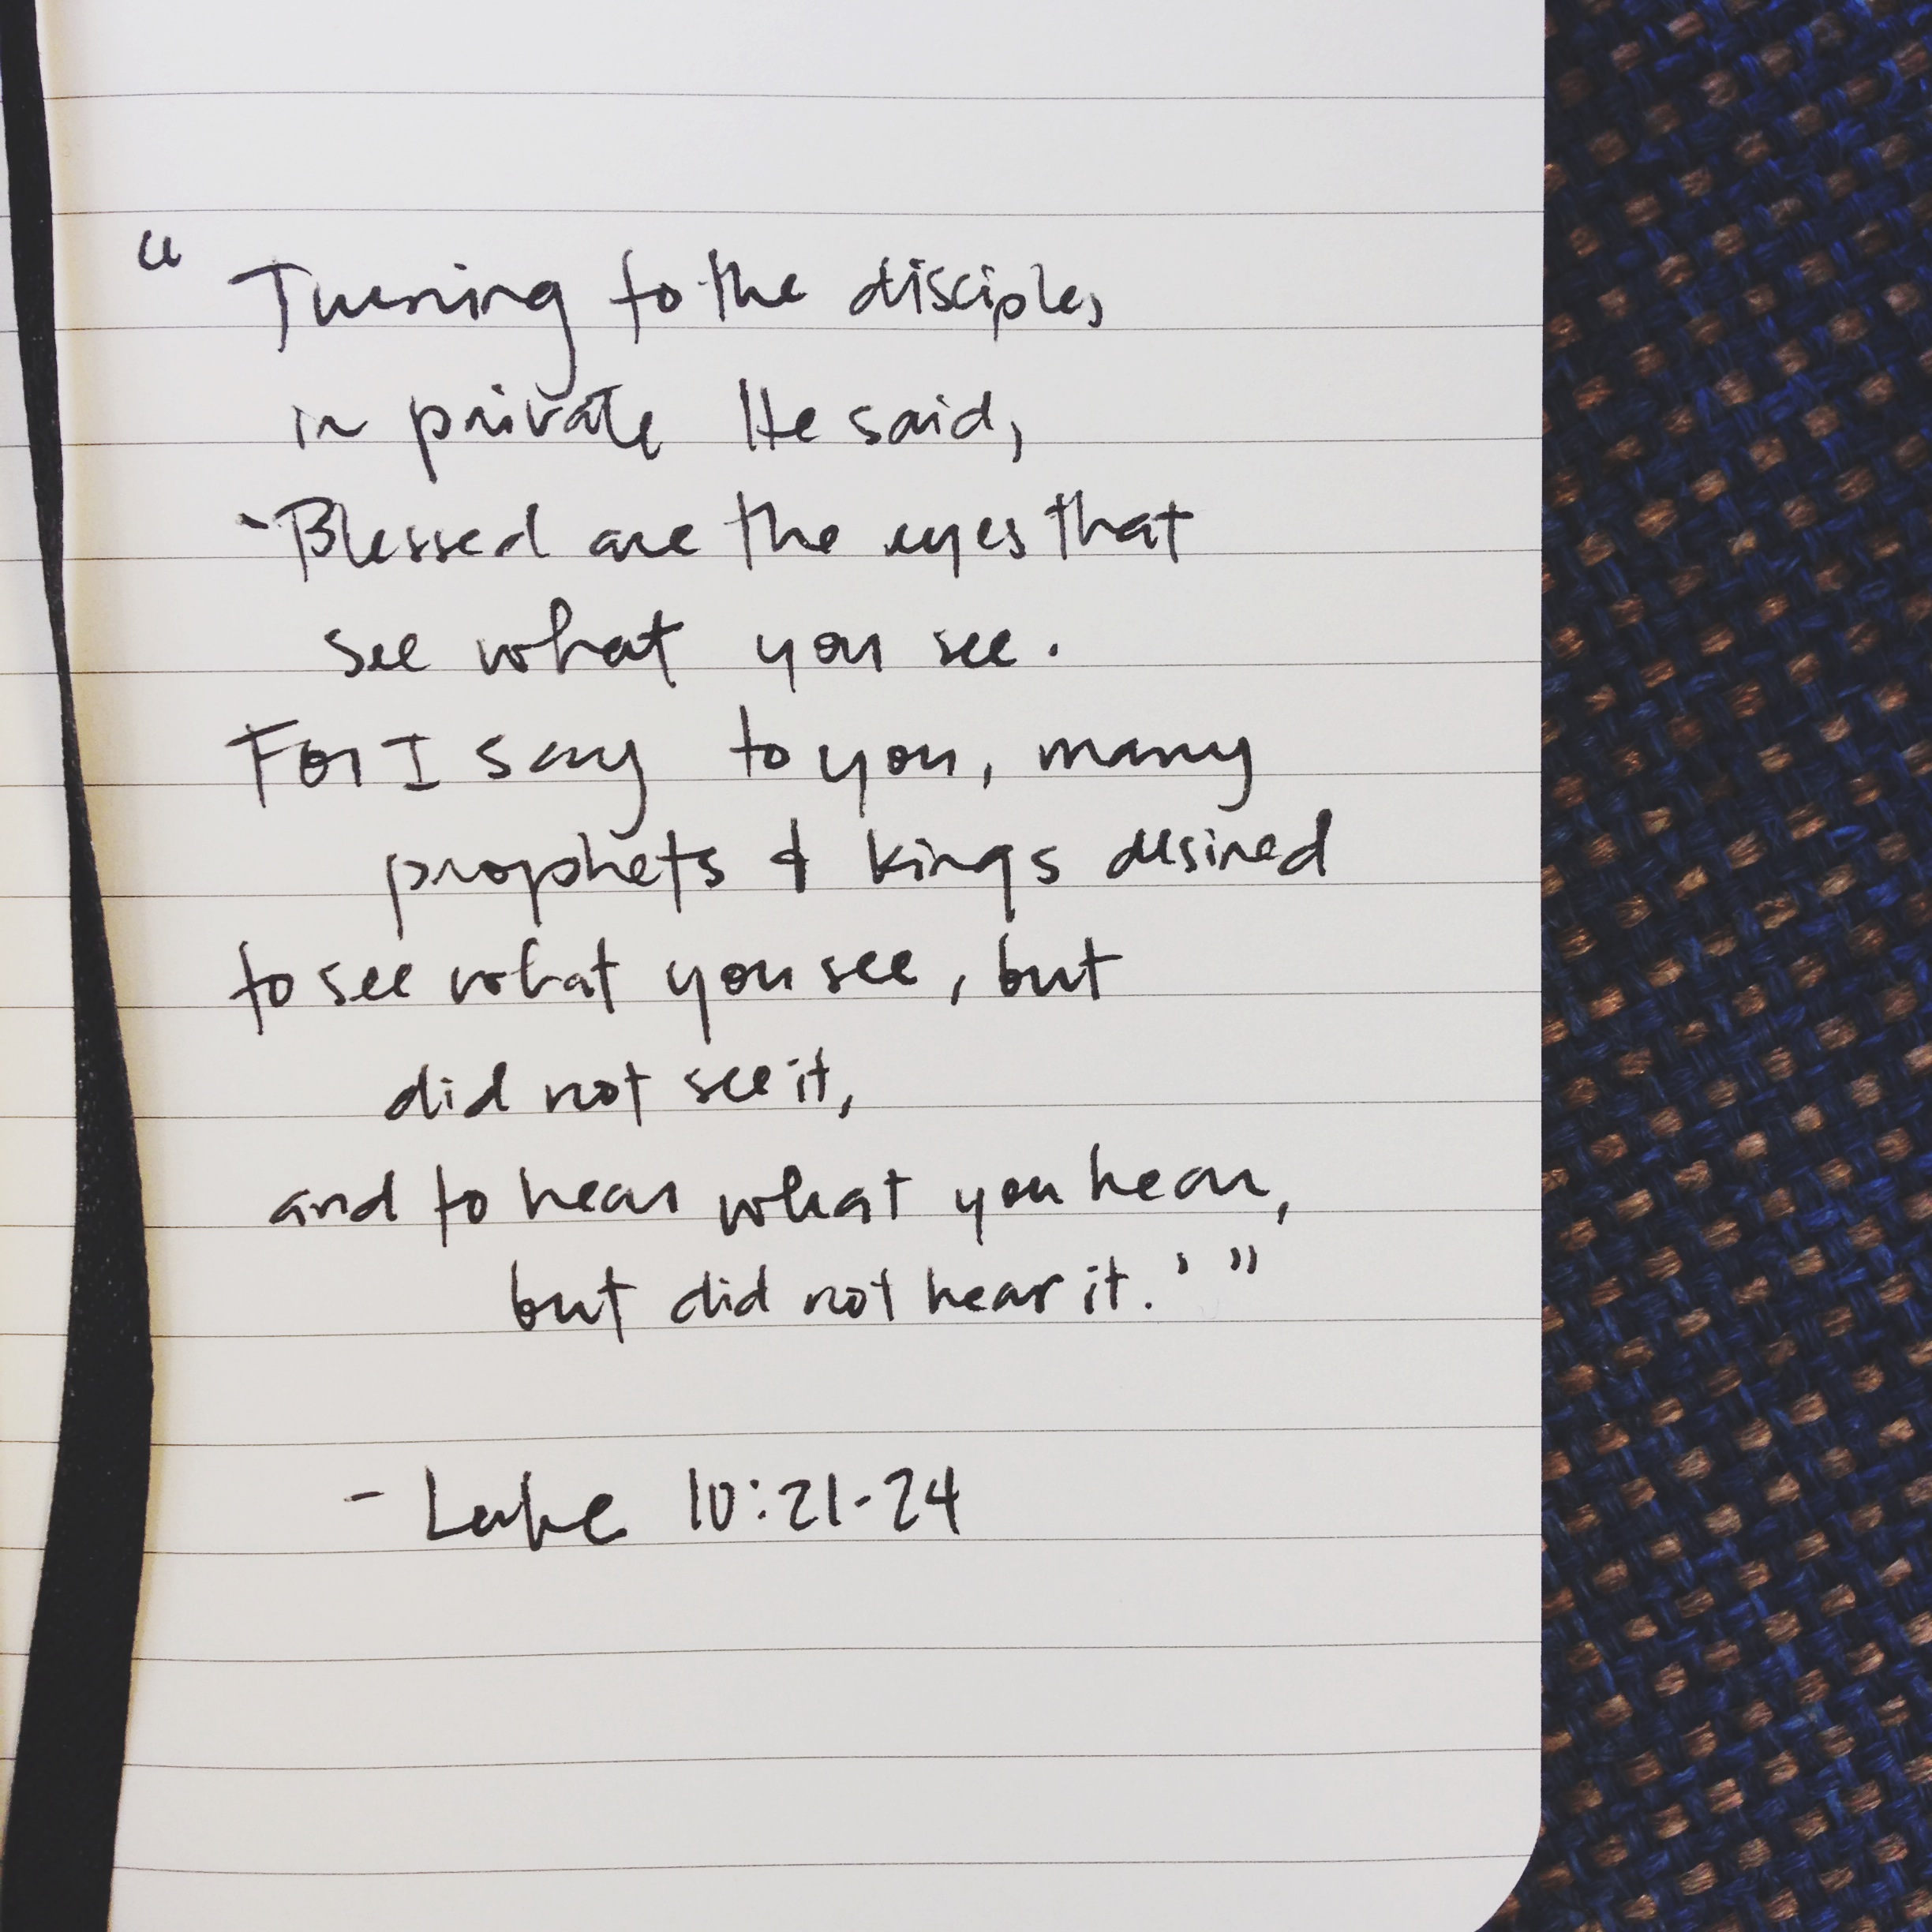 “ Turning to the disciples
in private He said,
‘Blessed are the eyes that
see what you see.
For I say to you, many
prophets & kings desired
to see what you see, but
did not see it,
and to hear what you hear,
but did not hear it.’ ”
- Luke 10:21-24